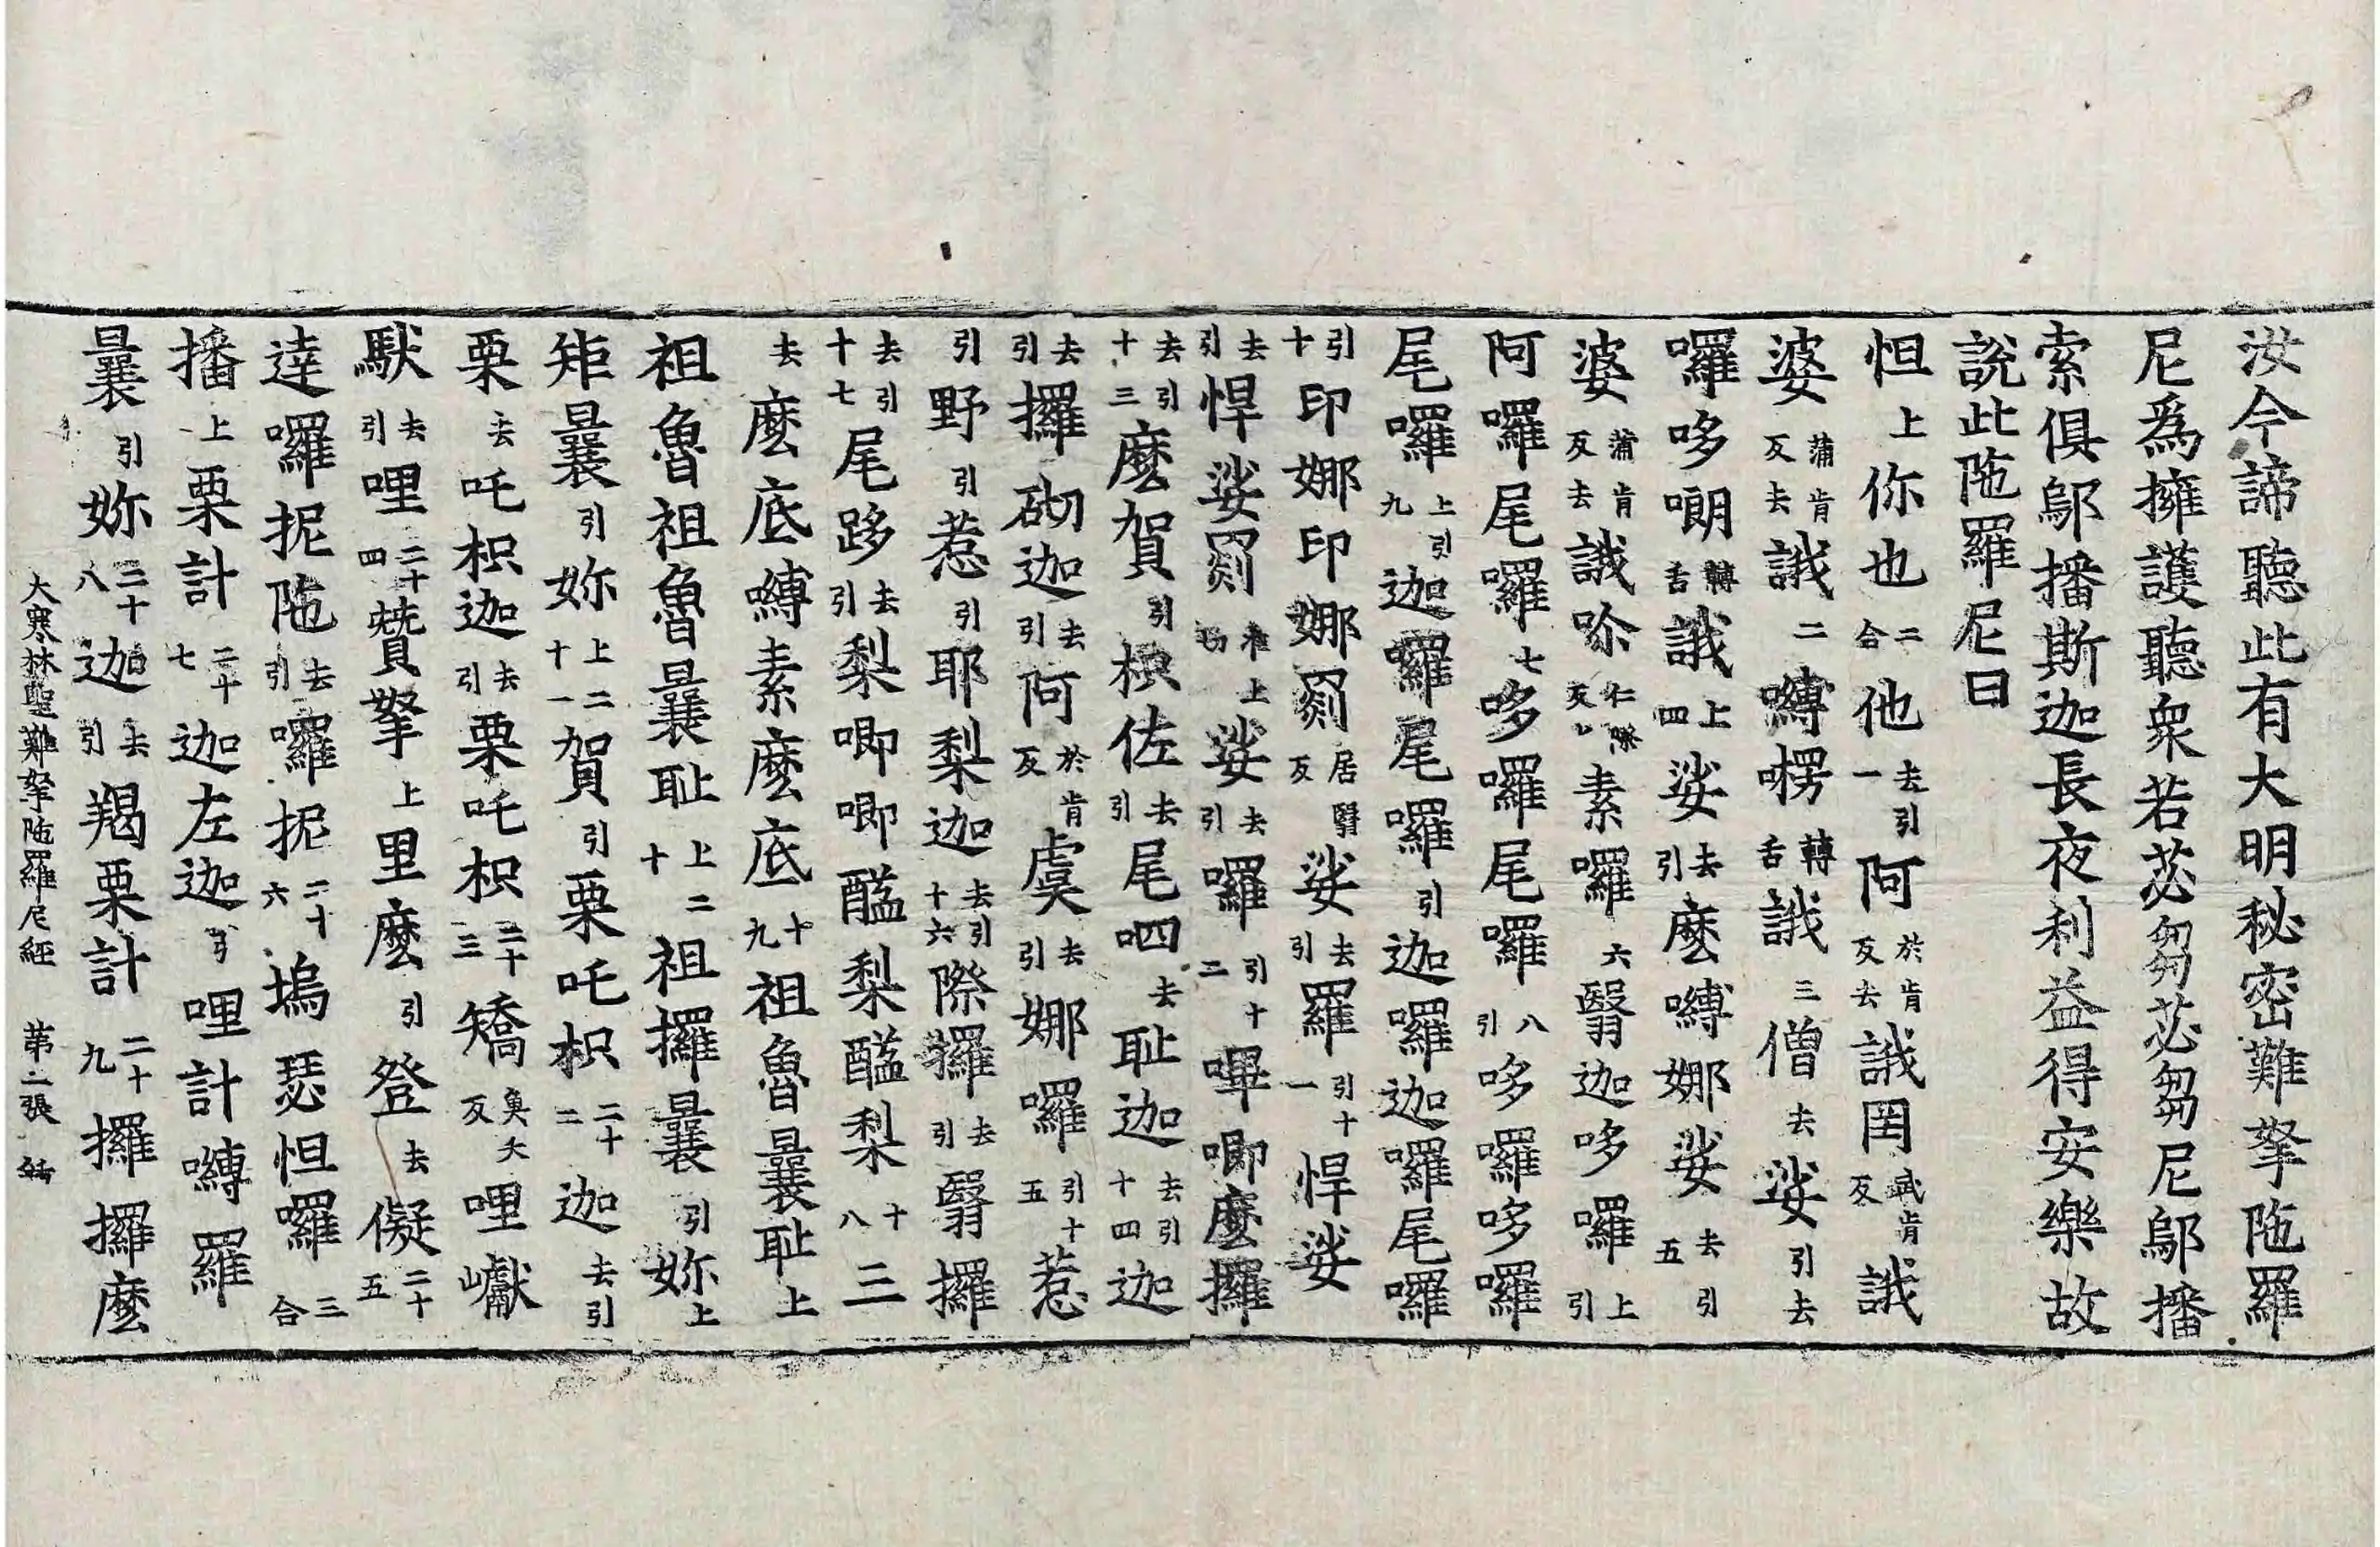 汝今諦聽此有大明秘密難拏陁羅
尼爲擁護聽衆若苾芻苾芻尼鄔播
索俱鄔播斯迦長夜利益得安樂故
說此陁羅尼曰
怛上你也二合他去引一阿於肯反去誐罔武肯反誐
婆蒲肯反去誐二嚩㗚轉舌誐三僧去娑引去
囉哆㘄轉舌誐上四娑去引麽嚩娜娑去引五
婆蒲肯反去誐仁際反素囉六翳迦哆囉上引
阿囉尾囉七哆囉尾囉八引哆囉哆囉
尾囉上引九迦囉尾囉引迦囉迦囉尾囉
引十印娜印娜罽居翳反娑去引羅引十一悍娑
去引悍娑罽上娑去引囉引十二嗶唧麽攞
去引十三麽賀引枳佐去引尾呬去耻迦去引十四迦
去引攞砌迦去引阿於肯反虞去引娜囉引十五惹
引野引惹引耶梨迦去引十六際攞去引翳攞
去引十七尾跢去引梨唧唧醯梨醯梨十八三
去麽底嚩素麽底十九祖魯曩耻上
祖魯祖魯曩耻上二十祖攞曩引妳上
矩曩引妳上二十一賀引栗吒枳二十二迦去引
栗去吒枳迦去引栗吒枳二十三矯魚夭反哩巘
馱去引哩二十四贊拏上里麽引登去儗二十五
達囉抳陁去引囉抳二十六塢瑟怛囉三合
播上栗計二十七迦左迦引哩計嚩羅
曩引妳二十八迦去引羯栗計二十九攞攞麽
大寒林聖難拏陁羅尼經 苐二張